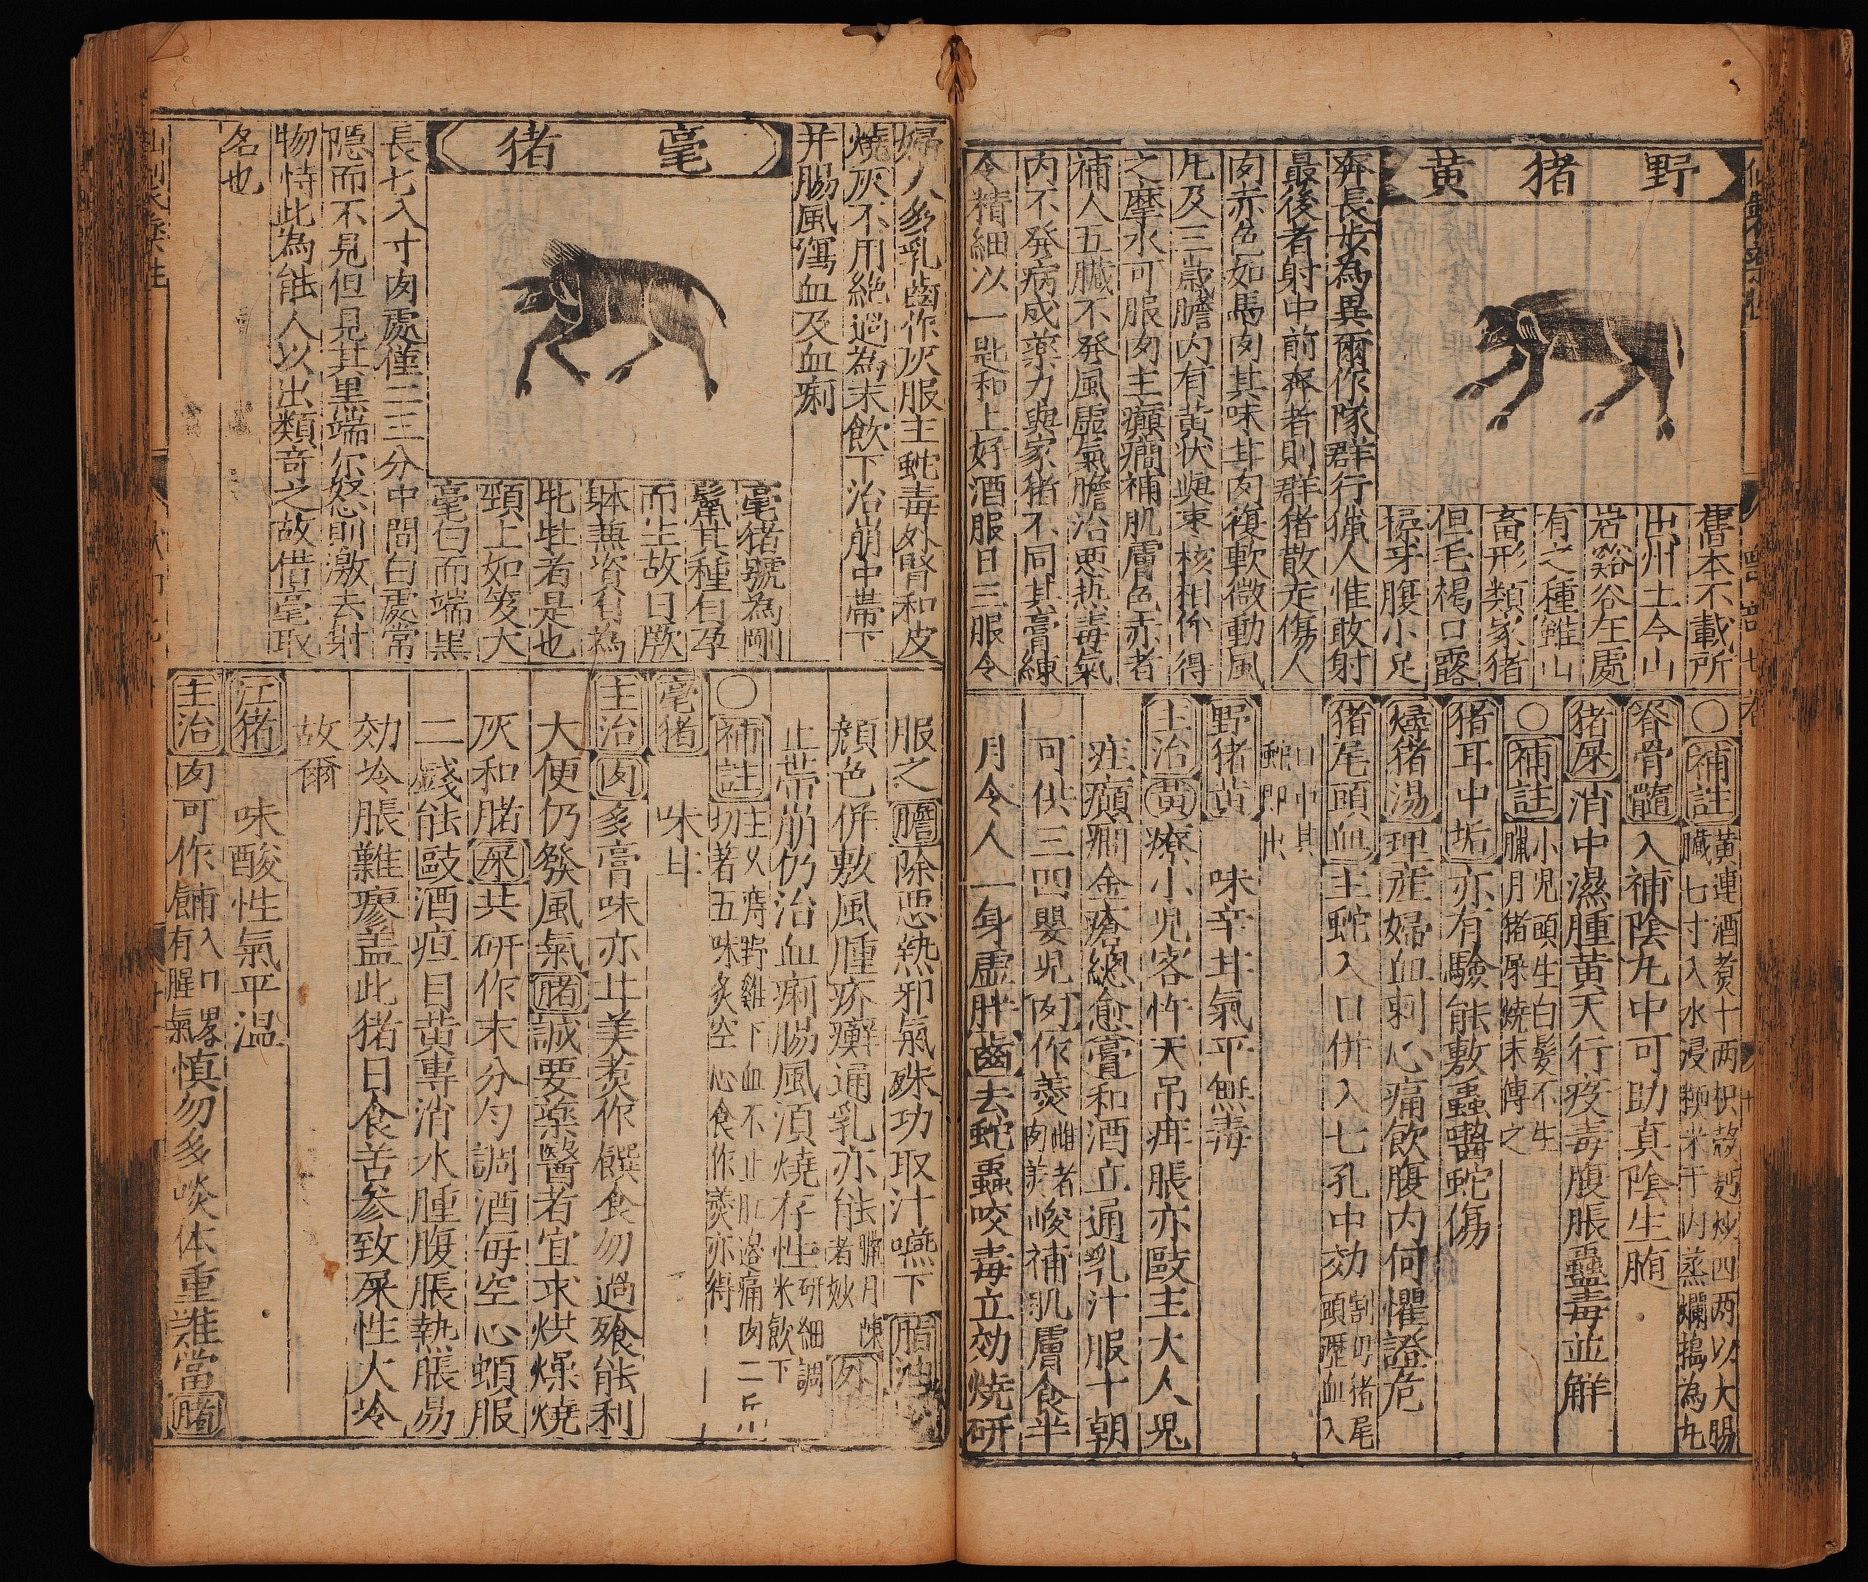 野猪黄
舊本不載所
出州土今山
岩谿谷在處
有之種雖山
畜形類家猪
但毛褐口露
獠牙腹小足
奔長步為異爾作隊群行獵人惟敢射
最後者射中前奔者則群猪散走傷人
肉赤色如馬肉其味甘肉復軟微動風
凡及三歲膽内有黄狀與棗核相似得
之摩水可服肉主癲癇補肌膚色赤者
補人五臟不發風虛氣膽治惡熱毒氣
内不發病成藥力與家猪不同其膏練
令精細以一匙和上好酒服日三服令
○補註黄連酒煮十两枳殻麪炒四两以大腸
臟七寸入水浸糯米于内蒸爛搗為丸
脊骨髓入補陰丸中可助真陰生脢
猪屎消中濕腫黄天行疫毒腹脹蠱毒並觧
○補註小児頭生白髮不生
臘月猪屎燒末傅之
猪耳中垢亦有驗能敷蟲囓蛇傷
燖猪湯理産婦血刺心痛飲腹内何懼證危
猪尾頭血主蛇入口併入七孔中効割母猪尾
頭瀝血入
口中其
蛇即出
野猪黄 味辛甘氣平無毒
主治黄療小児客忤天吊疳脹亦毆主大人鬼
疰癲癇金瘡總愈膏和酒立通乳汁服十朝
可供三四嬰児肉作羹雌者
肉美峻補肌膚食半
月令人一身虛胖齒去蛇蟲咬毒立効燒研
婦人多乳齒作灰服主蛇毒外腎和皮
燒灰不用絶過為末飲下治崩中帶下
并腸風瀉血及血痢
毫猪
毫猪號為剛
鬣其種自孕
而生故曰厥
躰兼資自為
牝牡者是也
頸上如笅大
毫白而端黒
長七入寸肉處僅二三分中間白處常
隱而不見但見其黒端尔怒則激去射
物恃此為能人以出類竒之故借毫取
名也
服之膽除惡熱邪氣殊功取汁嚥下脂
顔色併敷風腫疥癬通乳亦能臘月
者妙外
止帶崩仍治血痢腸風湏燒存性研細調
米飲下
○補註主久痔野雞下血不止肛邉痛肉二斤
切著五味炙空心食作羹亦得
毫猪 味甘
主治肉多膏味亦甘美煮作饌食勿過飱能利
大便仍發風氣䐗誠要藥醫者宜求烘燥燒
灰和䐗屎共研作末分匀調酒毎空心頓服
二錢能毆酒疸目黄專消水腫腹脹熱脹易
効冷脹難瘳盖此猪日食苦参致屎性大冷
故爾
江猪 味酸性氣平温
主治肉可作餔入口畧
有腥氣慎勿多啖体重難當䐗